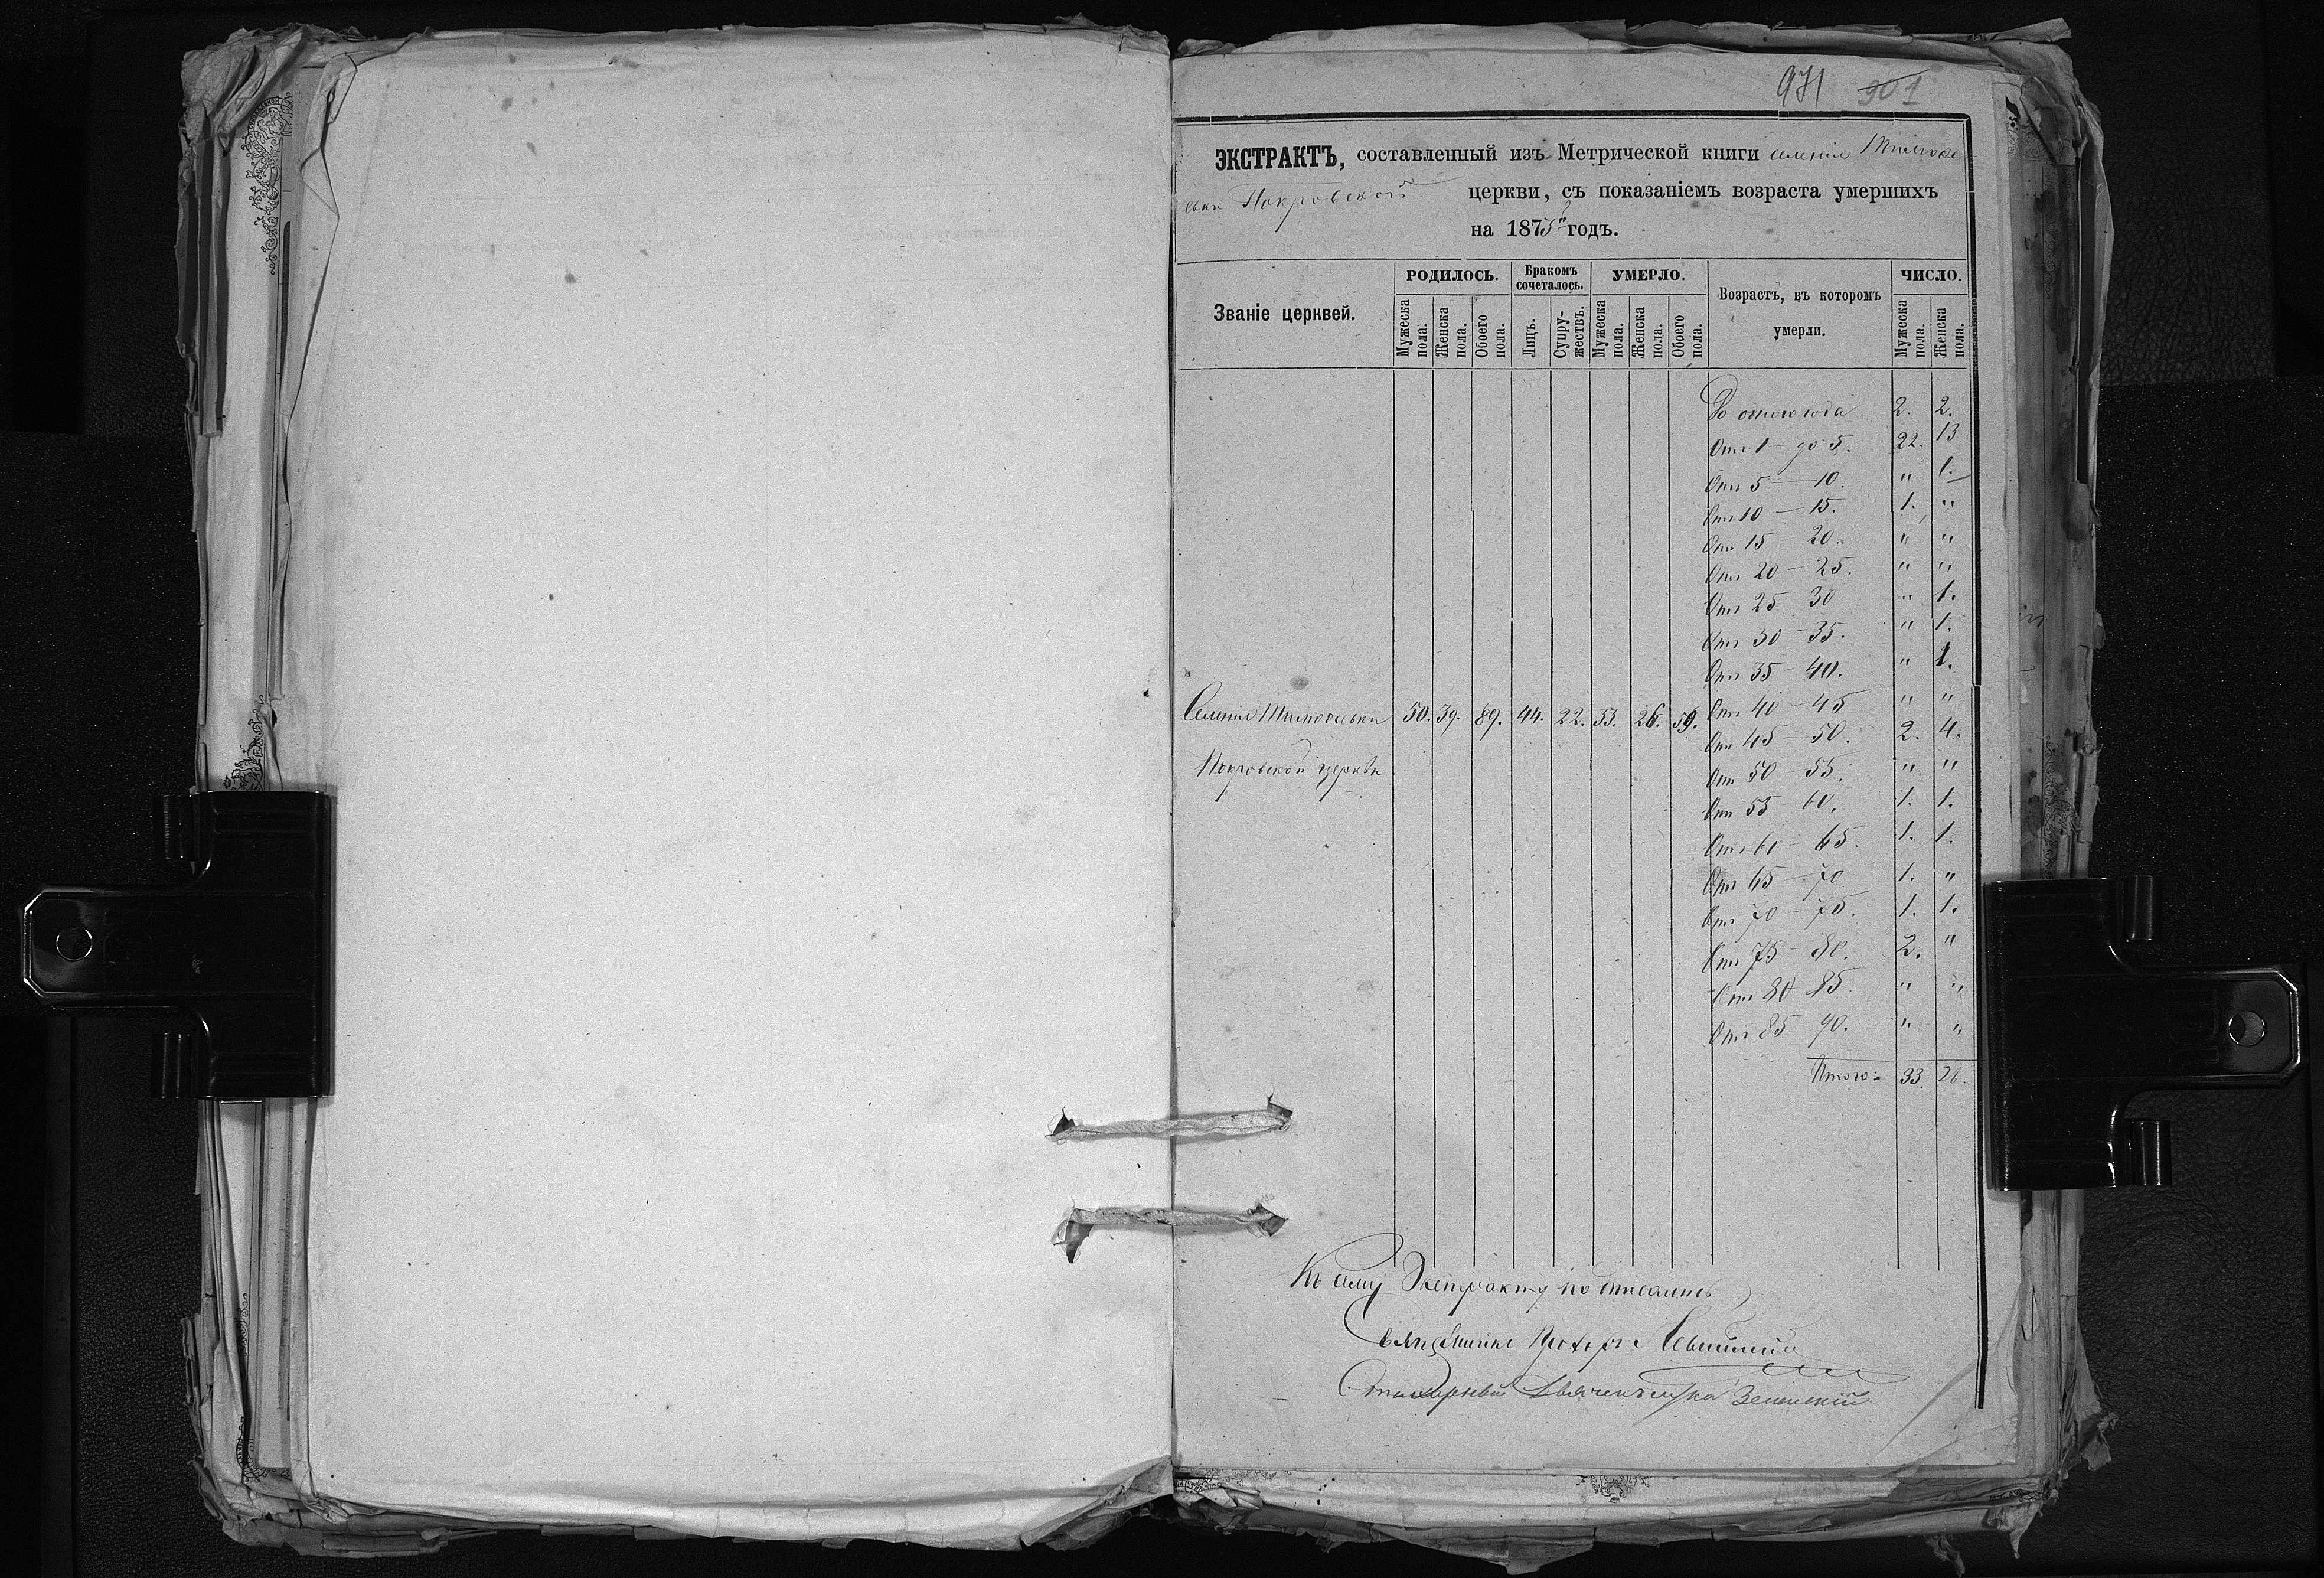 971 901
ЭКСТРАКТЪ, составленный изъ Метрической книги селенія
Покровской церкви, съ показаніемъ возраста умершихъ
на 1875й годъ.
Званіе церквей.
РОДИЛОСЬ.
Бракомъ сочеталось.
УМЕРЛО.
Возрастъ, въ которомъ умерли.
ЧИСЛО.
Мужеска пола. Женска пола. Обоего пола. Лицъ. Супружествъ. Мужеска пола. Женска пола. Обоего пола. Мужеска пола. Женска пола.
До одного года 2. 2.
Отъ 1 – до 5. 22. 13
Отъ 5 — 10. " 1.
Отъ 10 — 15. 1. "
Отъ 15 – 20. " "
Отъ 20 – 25. " "
Отъ 25 30 " 1.
Отъ 30 – 35. " 1.
Отъ 35 – 40. " 1.
Селенія 50. 39. 89. 44. 22. 33. 26. 59. Отъ 40 – 45 " "
Отъ 45 – 50. 2. 4.
Покровской церкви Отъ 50 – 55. " "
Отъ 55 60. 1. 1.
Отъ 60 – 65. 1. 1.
Отъ 65 – 70 1. "
Отъ 70 – 75. 1. 1.
Отъ 75 – 80. 2. "
Отъ 80 – 85. " "
Отъ 85 90. " "
Итого: 33. 26.
Къ сему Экстракту подписались
Священникъ Прохоръ Левитскій
Стихарный